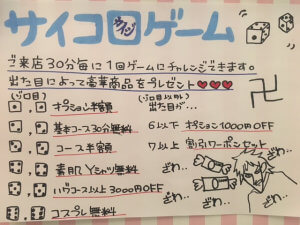 サイコロゲーム
サイコロ
ご来店30分毎に1回ゲームにチャレンジできます。
出た目によって豪華商品をプレゼント♥♥♥
(ゾロ目)
(ゾロ目以外)
出た目が…
オプション半額
基本コース30分無料
6以下 オプション1000円OFF
コース半額
7以上 割引クーポンセット
素肌Yシャツ無料
ざわ…
ざわ…
コース以上3000円OFF
ざわ…
コスプレ無料
ざわ…
ざわ…